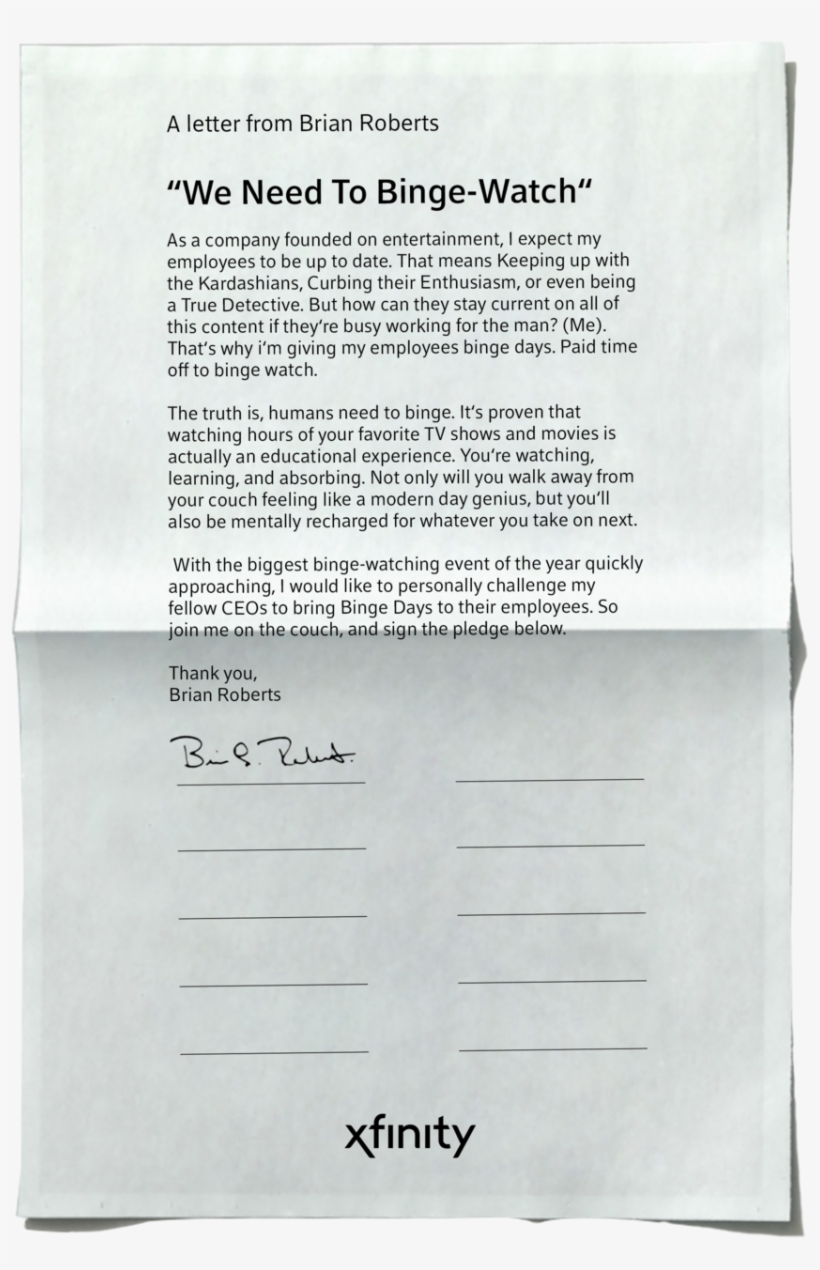 A letter from Brian Roberts
“We Need To Binge-Watch“
As a company founded on entertainment, I expect my
employees to be up to date. That means Keeping up with
the Kardashians, Curbing their Enthusiasm, or even being
a True Detective. But how can they stay current on all of
this content if they're busy working for the man? (Me).
That's why i'm giving my employees binge days. Paid time
off to binge watch.
The truth is, humans need to binge. It's proven that
watching hours of your favorite TV shows and movies is
actually an educational experience. You're watching,
learning, and absorbing. Not only will you walk away from
your couch feeling like a modern day genius, but you'll
also be mentally recharged for whatever you take on next.
With the biggest binge-watching event of the year quickly
approaching, I would like to personally challenge my
fellow CEOs to bring Binge Days to their employees. So
join me on the couch, and sign the pledge below.
Thank you,
Brian Roberts
Brian S. Roberts.
xfinity